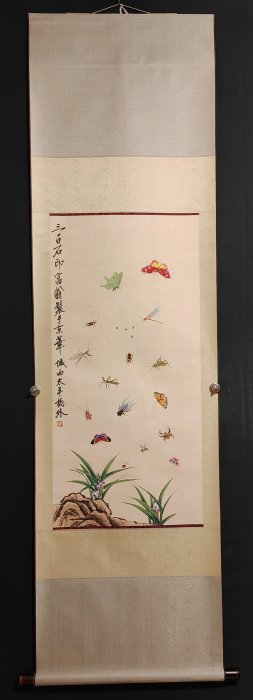 三百石印富翁製于京華
城西太平橋外